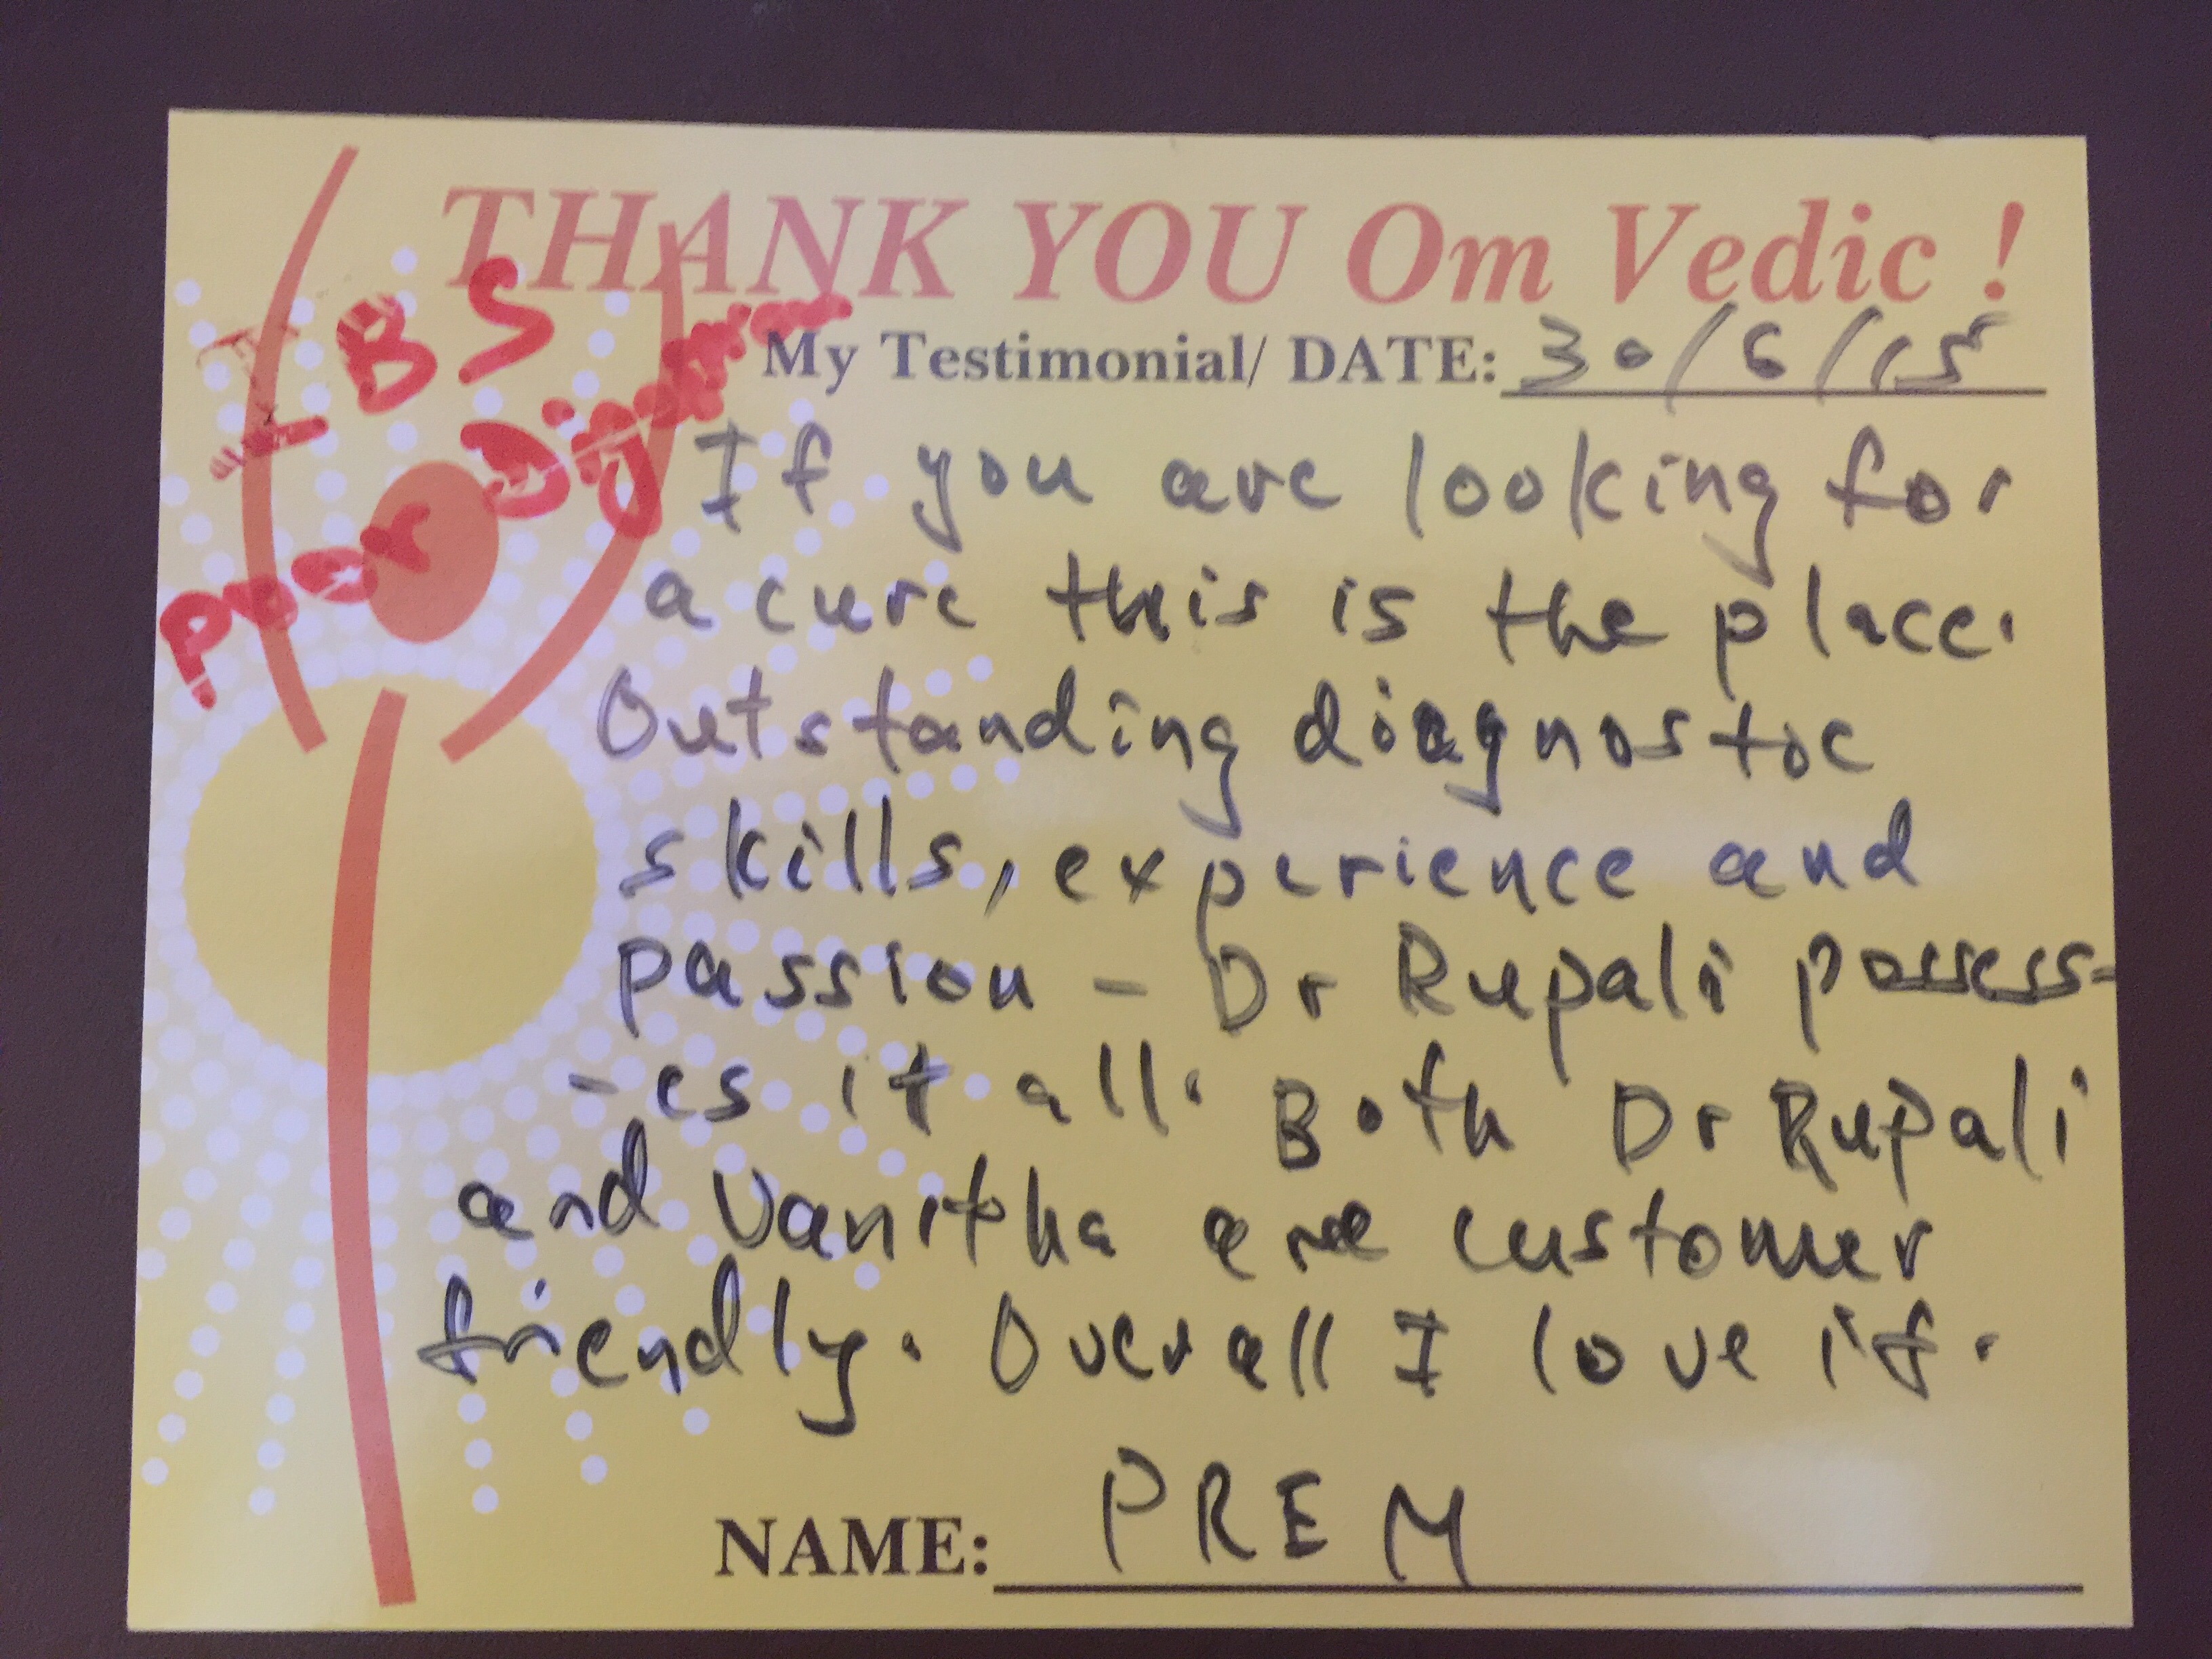 THANK YOU Om Vedic !
IBS
Poor Digestion
My Testimonial/ DATE: 30/6/15
If you are looking for
a cure this is the place.
Outstanding diagnostic
skills, experience and
passion - Dr Rupali possess-
-es it all. Both Dr Rupali
and Vanitha are customer
friendly. Overall I love it.
NAME: PREM